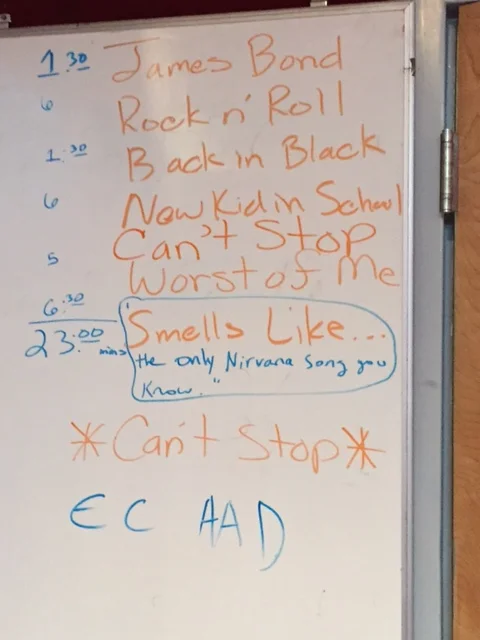 1:30 James Bond
6 Rock n' Roll
1:30 Back in Black
6 New Kid in School
Can't Stop
5 Worst of Me
6:30 Smells Like...
23:00 mins the only Nirvana song you
know."
*Can't Stop*
E C A A D